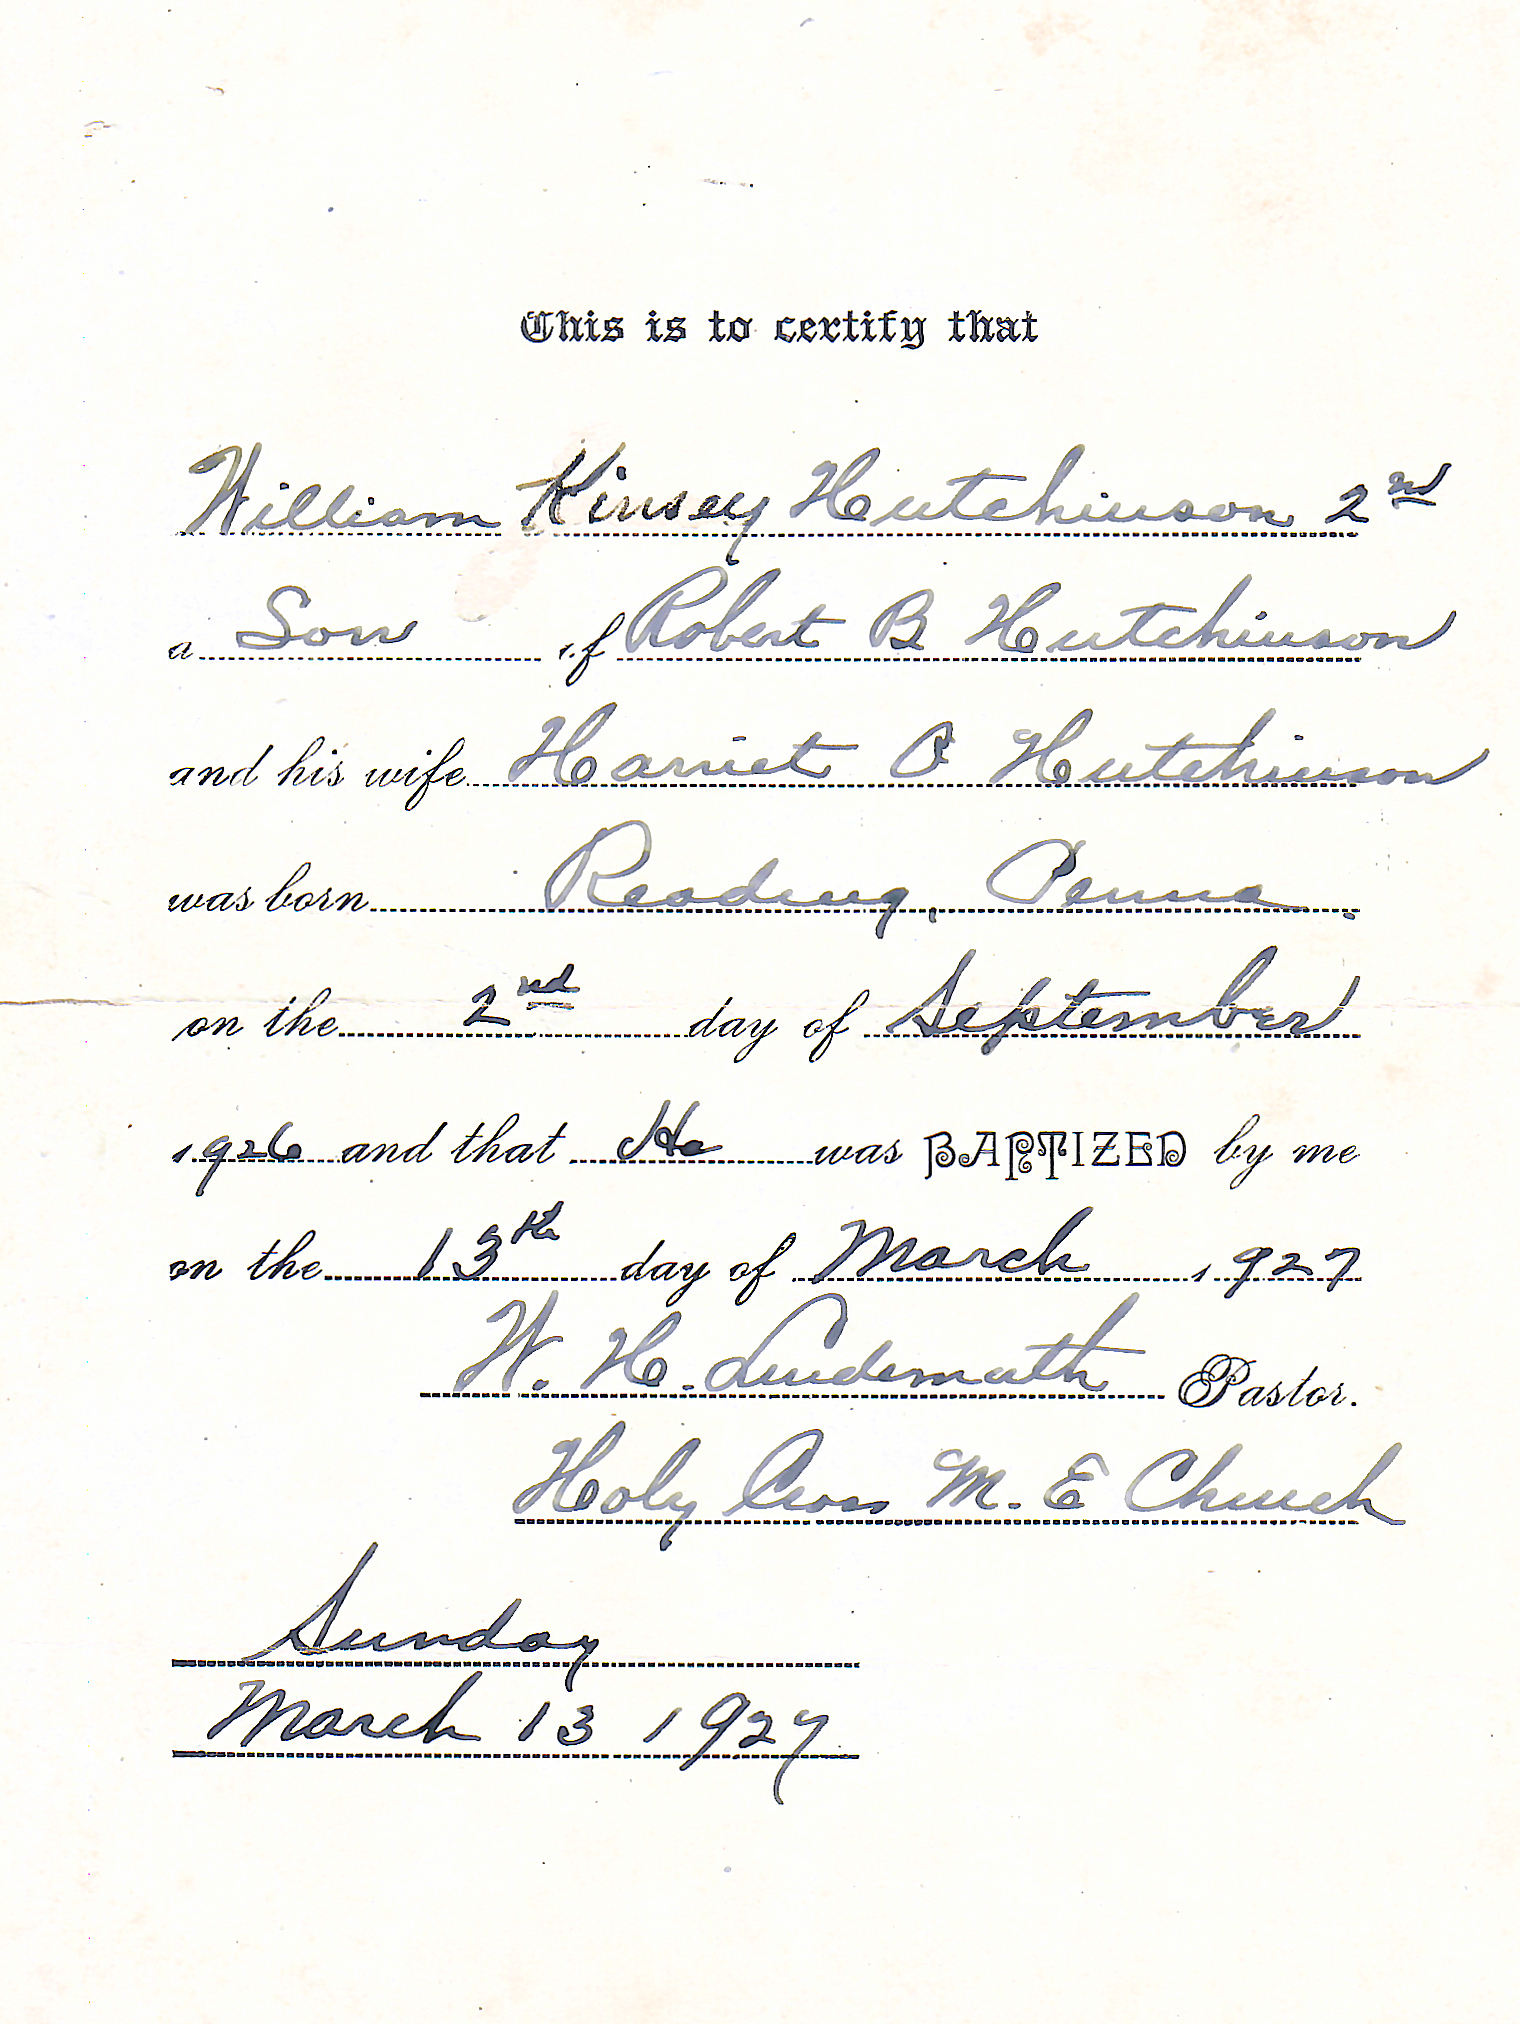 This is to certify that
William Kinsey Hutchinson 2nd
a Son of Robert B Hutchinson
and his wife Harriet P Hutchinson
was born Reading, Penna.
on the 2nd day of September
1926 and that He was BAPTIZED by me
on the 13th day of March 1927
W. H. Lindemuth Pastor.
Holy Cross M. E Church
Sunday
March 13 1927